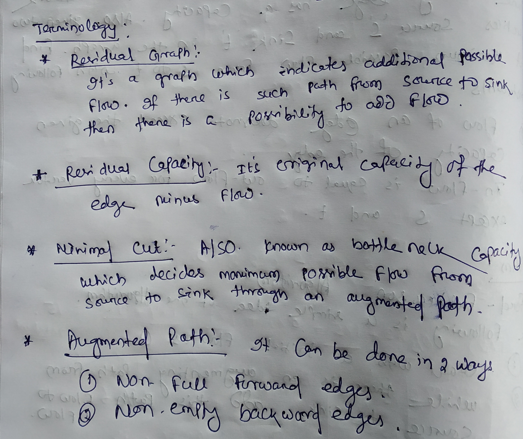 Terminology.
* Residual Graph :-
It's a graph which indicates additional possible
flow. If there is such path from source to sink
then there is a possibility to add flow.
* Residual Capacity :- It's original capacity of the
edge minus flow.
* Minimal cut :- Also known as bottle neck capacity
which decides maximum possible flow from
source to sink through an augmented path.
* Augmented Path :- It can be done in 2 ways
① Non-full forward edges.
② Non-empty backward edges.